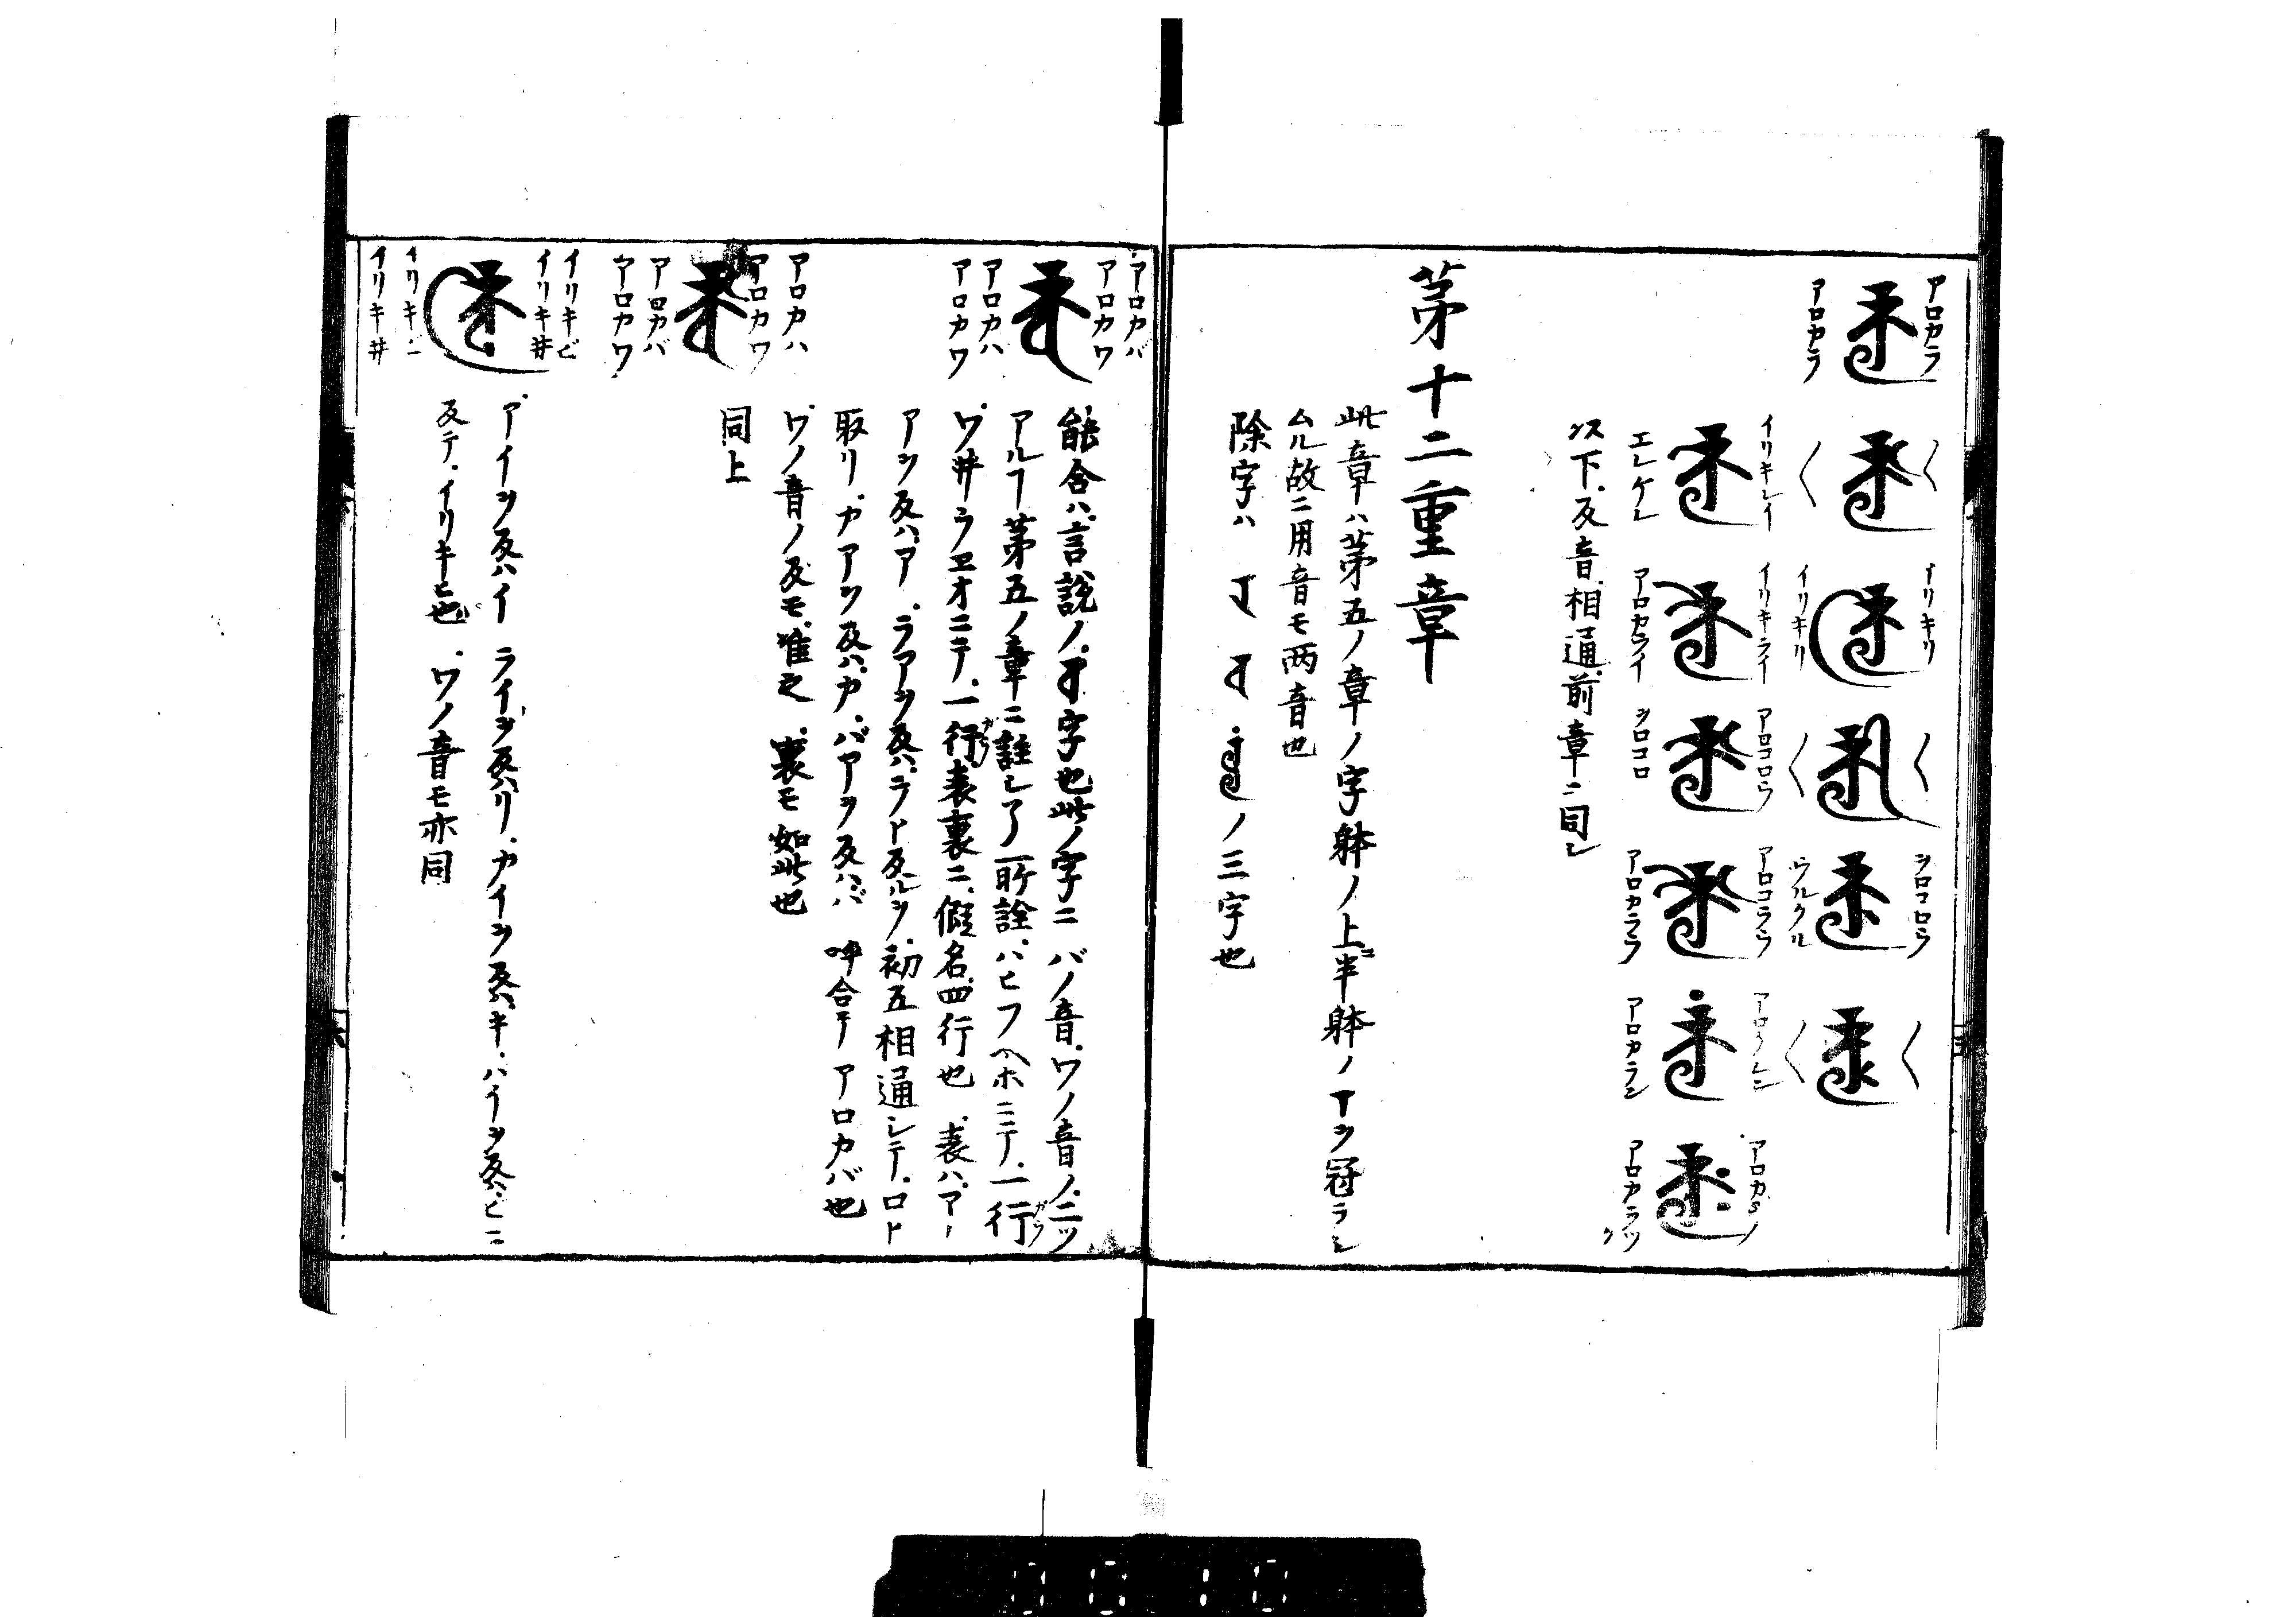 アロカラ
アロカラ
〱
〱
イリキリ
イリキリ
〱
〱
ヲロコロウ
ウルクル
〱
〱
イリキレイ
エレケレ
イリキライ
アロカライ
アロコロウ
ヲロコロ
アロコラウ
アロカラウ
アロカラン
アロカラツ
ク
以下反音相通前章ニ同シ
第十二重章
此章ハ第五ノ章ノ字躰ノ上ニ半躰ノ
ヲ冠ラシ
ムル故ニ用音モ两音也
除字ハ
ノ三字也
アロカバ
アロカワ
アロカハ
アロカワ
能合ハ言說ノ
字也此ノ字ニバノ音ワノ音ノ二ツ
アルヿ第五ノ章ニ註シ了所詮ハヒフヘホニテ一行
ガウ
ワ井ウヱオニテ一行表裏ニ假名四行也表ハアー
ガウ
アヲ反ハアラアヲ反ハラト反ルヲ初五相通シテロト
取リカアヲ反ハカバアヲ反ハバ呼合テアロカバ也
ワノ音ノ反モ准之裏モ如此也
アロカハ
アロカワ
アロカバ
アロカワ
同上
イリキビ
イリキ井
イリキヒ
イリキ井
アイヲ反ハイライヲ反ハリカイヲ反ハキハイヲ反ハヒニ
反テイリキヒ也ワノ音モ亦同